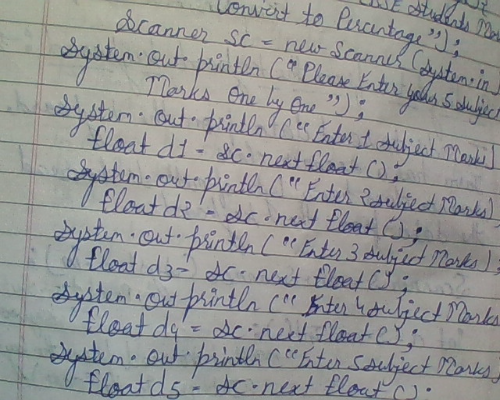 CBSE Students Mar
Convert to Percentage");
Scanner SC = new Scanner (System.in)
System.out.println ("Please Enter your 5 subject
Marks One by One");
System.out.println ("Enter 1 subject Marks)
float d1 = sc.next float ();
System.out.println ("Enter 2 subject Marks)
float d2 = sc.next float ();
System.out.println ("Enter 3 subject Marks);
float d3 = sc.next float ();
System.out.println ("Enter 4 subject Marks
float d4 = sc.next float ();
System.out.println ("Enter 5 subject Marks)
float d5 = sc.next float ();